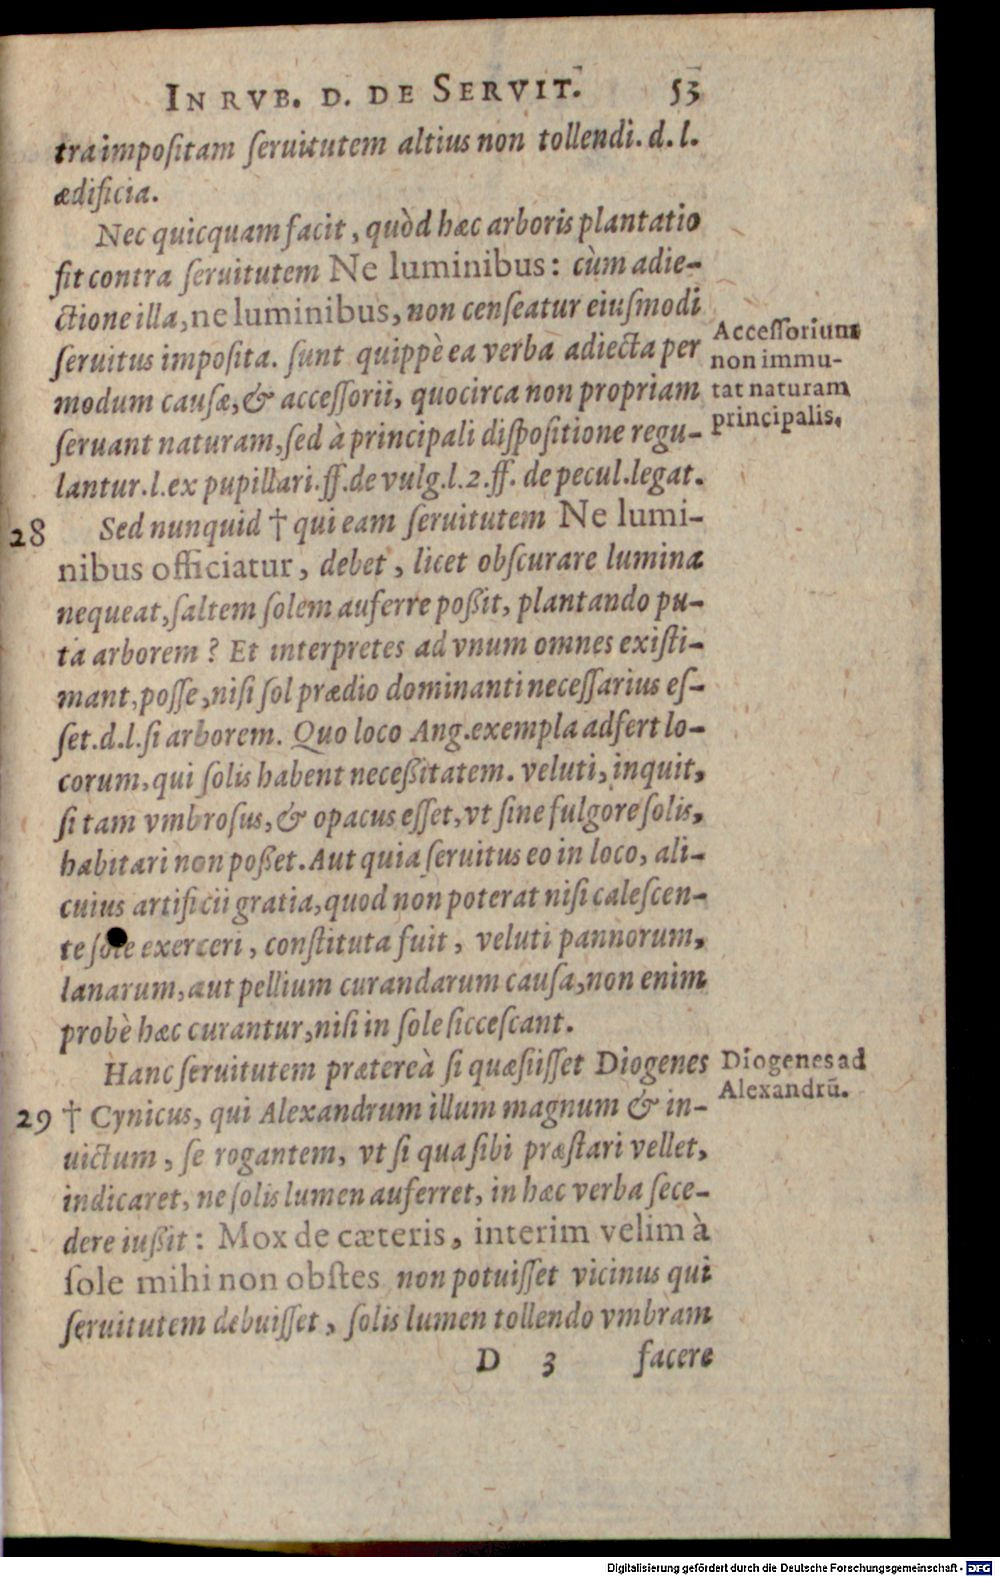 IN RVB. D. DE SERVIT. 53
tra impoſitam ſeruitutem altius non tollendi. d. l.
ædificia.
Nec quicquam facit, quòd hæc arboris plantatio
fit contra ſeruitutem Ne luminibus: cùm adie-
ctione illa, ne luminibus, non cenſeatur eiuſmodi
ſeruitus impoſita. ſunt quippè ea verba adiecta per
modum cauſæ, & acceſſorii, quocirca non propriam
ſeruant naturam, ſed à principali diſpoſitione regu-
lantur. l. ex pupillari. ff. de vulg. l. 2. ff. de pecul. legat.
Acceſſorium
non immu-
tat naturam
principalis.
28 Sed nunquid † qui eam ſeruitutem Ne lumi-
nibus officiatur, debet, licet obſcurare lumina
nequeat, ſaltem ſolem auferre poßit, plantando pu-
tà arborem? Et interpretes ad vnum omnes exiſti-
mant, poſſe, niſi ſol prædio dominanti neceſſarius eſ-
ſet. d. l. ſi arborem. Quo loco Ang. exempla adfert lo-
corum, qui ſolis habent neceßitatem. veluti, inquit,
ſi tam vmbroſus, & opacus eſſet, vt ſine fulgore ſolis,
habitari non poßet. Aut quia ſeruitus eo in loco, ali-
cuius artificii gratia, quod non poterat niſi caleſcen-
te ſole exerceri, conſtituta fuit, veluti pannorum,
lanarum, aut pellium curandarum cauſa, non enim
probè hæc curantur, niſi in ſole ſicceſcant.
Hanc ſeruitutem prætereà ſi quæſiiſſet Diogenes
29 † Cynicus, qui Alexandrum illum magnum & in-
uictum, ſe rogantem, vt ſi qua ſibi præſtari vellet,
indicaret, ne ſolis lumen auferret, in hæc verba ſece-
dere iußit: Mox de cæteris, interim velim à
ſole mihi non obſtes non potuiſſet vicinus qui
ſeruitutem debuiſſet, ſolis lumen tollendo vmbram
Diogenes ad
Alexandrū.
D 3 facere
Digitalisierung gefördert durch die Deutsche Forschungsgemeinschaft - DFG